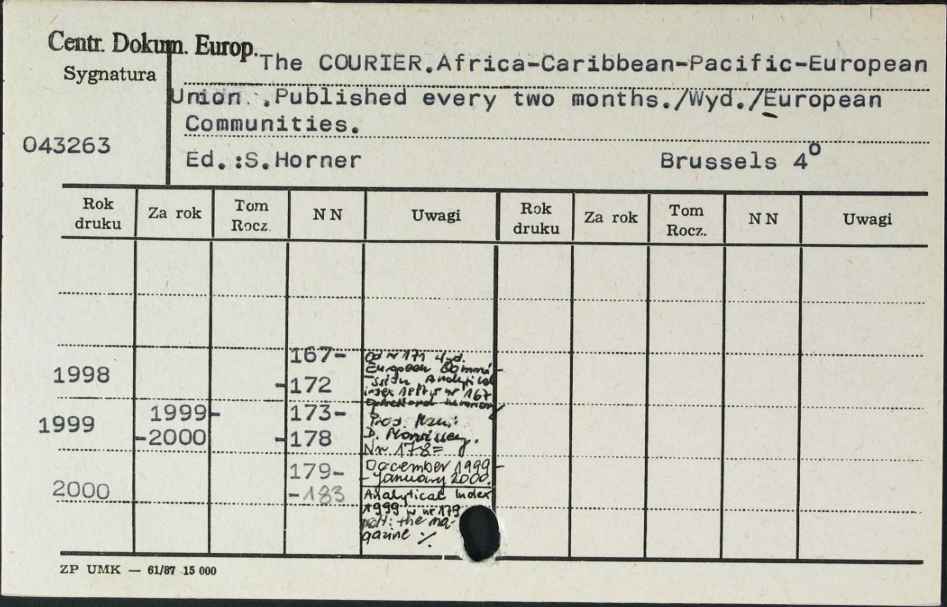 Centr. Dokum. Europ.
The COURIER.Africa-Caribbean-Pacific-European
Sygnatura
Union .Published every two months./Wyd./European
Communities.
043263
Ed.:S.Horner Brussels 4°
Rok druku Za rok Tom Rocz. NN Uwagi Rok druku Za rok Tom Rocz. NN Uwagi
167- od nr 171
1998 European
-172 Analytical
nr 167
1999 1999- 173-
-2000 -178 D.
Nr 178=
179- December 1999
- January 2000.
2000 -183 Analytical Index
1999 w nr 179
the ma-
gazine ./.
ZP UMK — 61/87 15 000